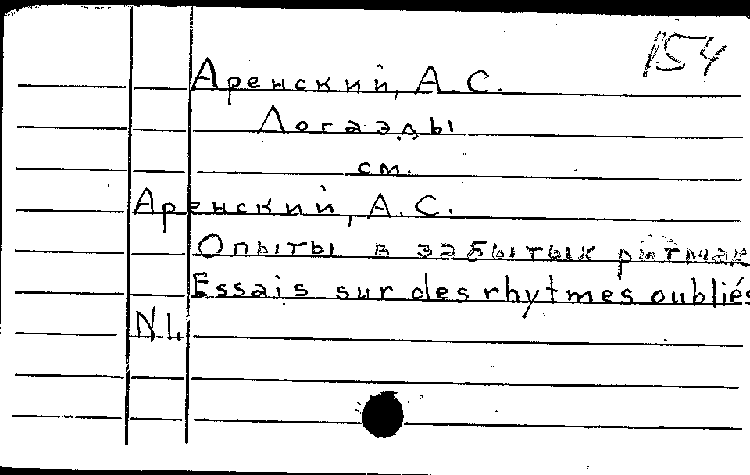 154
Аренский, А. С.
Логаэды
см.
Аренский, А. С.
Опыты в забытых ритмах
Essais sur des rhytmes oubliés
N 1.